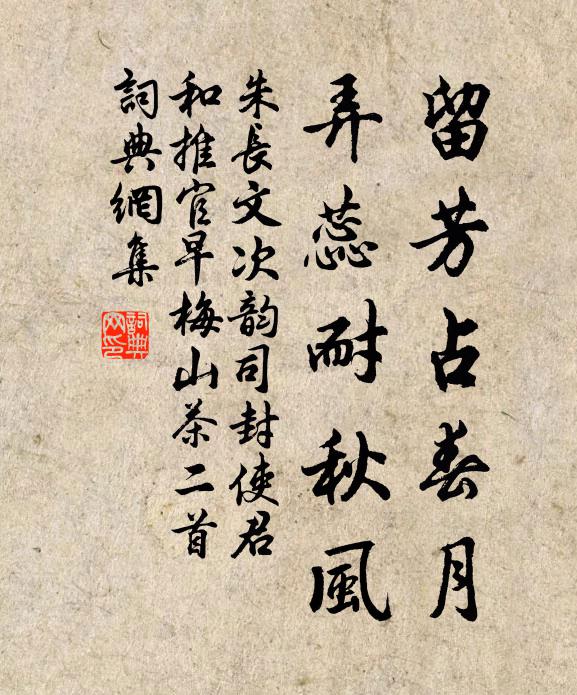 留芳占春月
弄蕊耐秋風
朱長文次韵司封使君
和推官早梅山茶二首
詞典網集
詞典網印